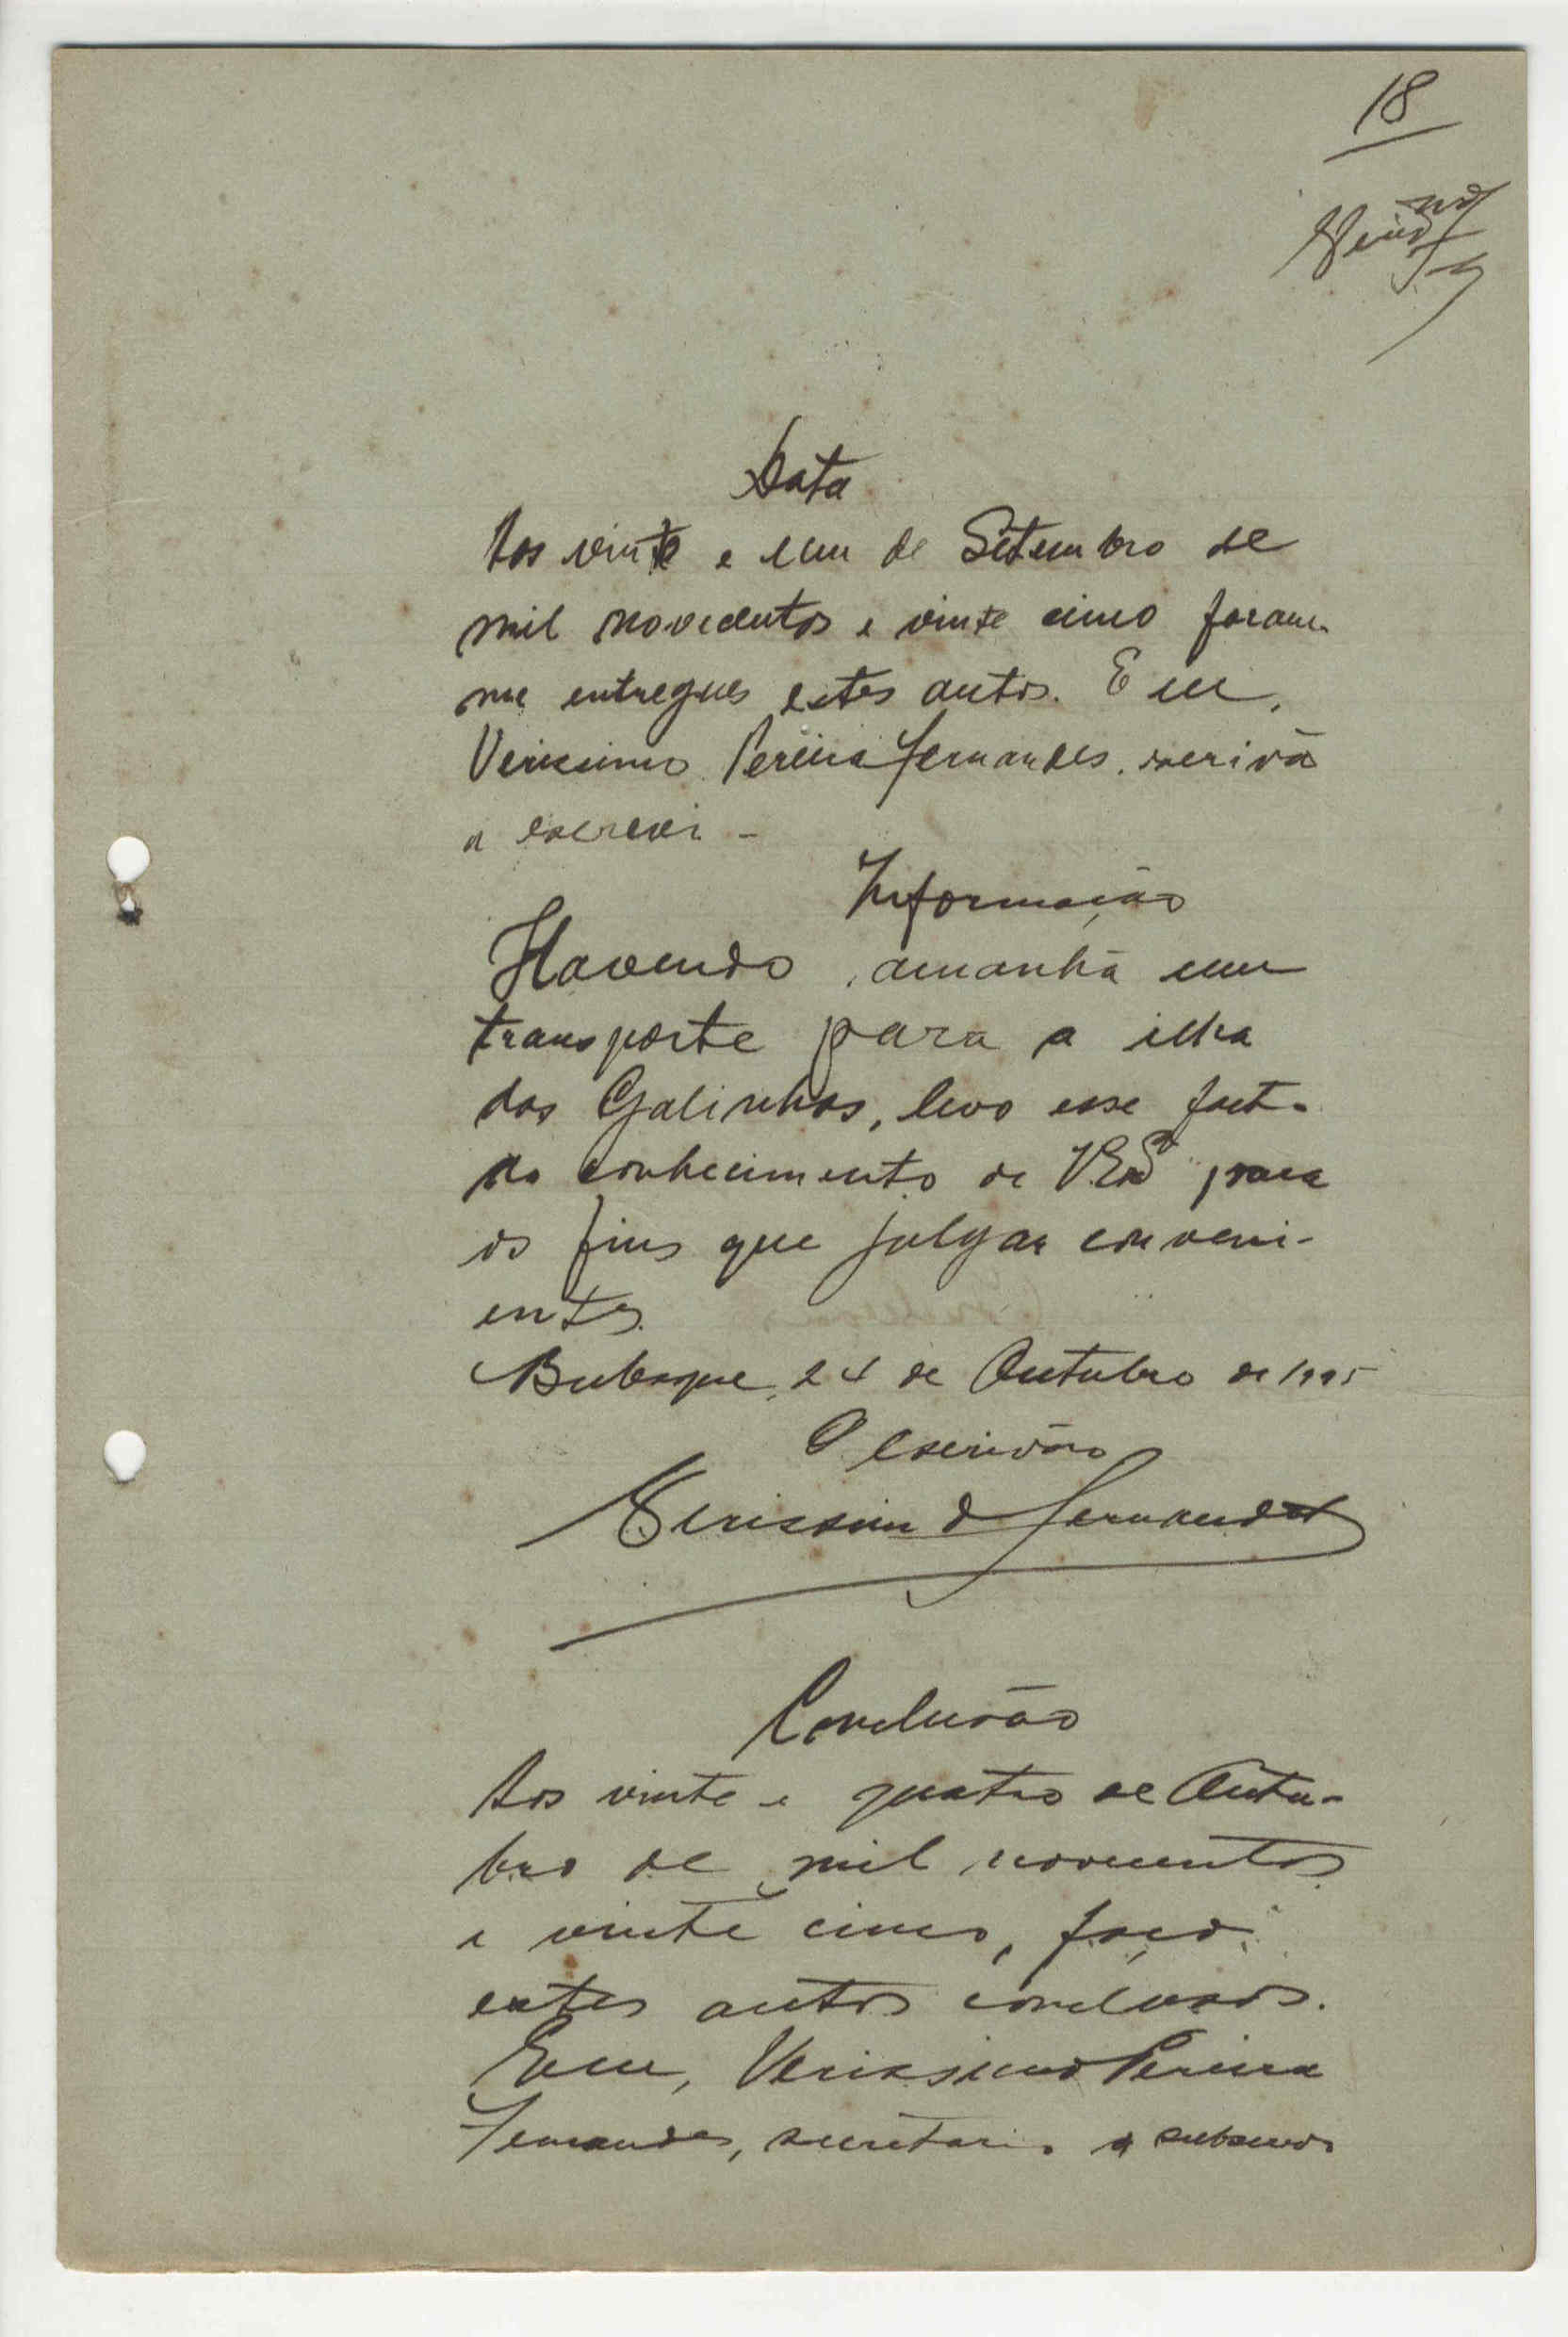 18
Data
Aos vinte e um de Setembro de
mil novecentos e vinte cinco foram
me entregues estes autos. E eu,
Verissimo Pereira Fernandes. escrivã
o escrevi -
Informação
Havendo amanhã um
transporte para a ilha
das Galinhas, levo esse facto
ao conhecimento de V. Exª para
os fins que julgar conveni-
entes.
Bubaque, 24 de Outubro de 1925
O escrivão
Verissimo P Fernandes
Conclusão
Aos vinte e quatro de Outu-
bro de mil novecentos
e vinte cinco, faço
estes autos conclusos.
E eu, Verissimo Pereira
Fernandes, secretario o subscrevo